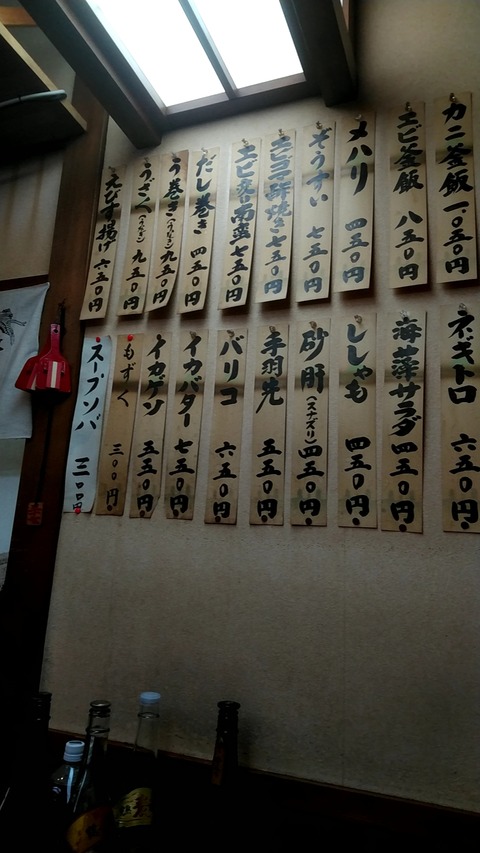 カニ釜飯 一、〇五〇円
エビ釜飯 八五〇円
メハリ 四五〇円
ぞうすい 七五〇円
エビマヨ酢焼き 七五〇円
だし巻き 四五〇円
う巻き(うなぎ) 九五〇円
うざく(うなぎ) 九五〇円
えびす揚げ 六五〇円
ネギトロ 六五〇円
海藻サラダ 四五〇円
ししゃも 四五〇円
砂肝(スナズリ) 四五〇円
手羽先 五五〇円
バリコ 六五〇円
イカバター 七五〇円
イカゲソ 五五〇円
もずく 三〇〇円
スープソバ 三〇〇円